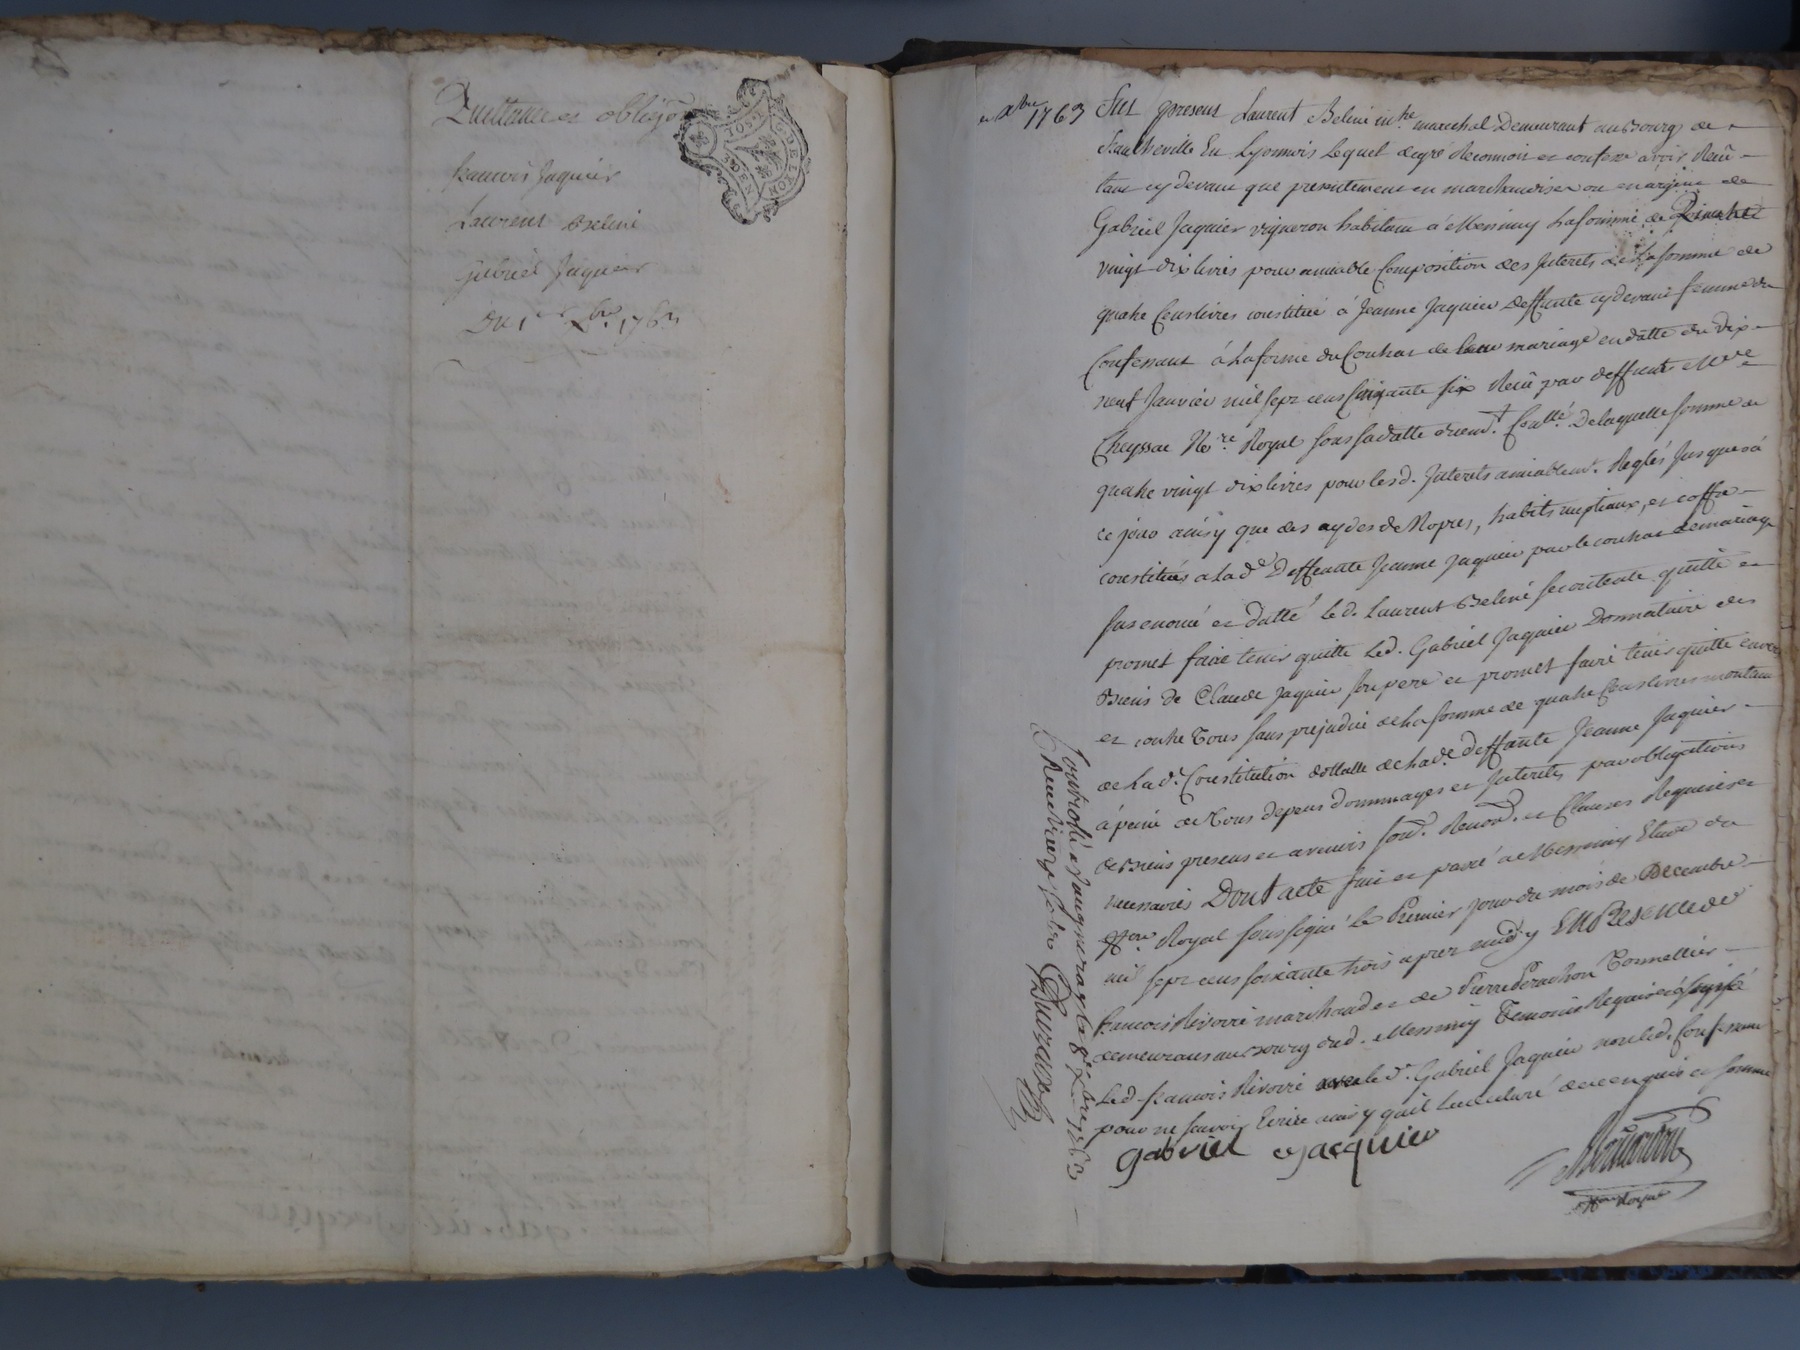 Quittance et obligõn
francois Jaquier
Laurent Beliné
gabriel Jaquier
Du 1er Xbre 1763
GDELYON
1 SOL
4 DEN
1763 Fut present Laurent Beliné me marechal Demeurant au Bourg de
francheville En Lyonnois Lequel de gré Reconnoit et confesse avoir Reçû
tant cy devant que presentement en marchandises ou en argent de
Gabriel Jaquier vigneron habitant á Messimy La somme de
vingt dix livres pour amiable Composition des Interets de La somme de
quatre Cens livres constitüé á Jeanne Jaquier deffunte cy devant femme du
Confessant á La forme du Contrat de Leur mariage en datte du dix
neuf Janvier mil sept cens Cinquante six Reçû par deffunt Me
Cheyssac Nore. Royal sous sa datte düemt. Contlé. De laquelle somme de
quatre vingt dix livres pour lesd. Interets amiablemt. Reglés Jusques á
ce jour ainsy que des aydes de Nopces, habits nuptiaux, et coffre
constitués a Lade Deffunte Jeanne Jaquier par le contrat de mariage
sus enoncé et datté Led. Laurent Beliné se contente quitte et
promet faire tenir quitte Led. Gabriel Jaquier Donnataire des
Biens de Claude Jaquier son pere et promet faire tenir quitte envers
et contre Tous sans prejudice de La somme de quatre Cens livres montant
de Lad. Constitution dottalle de Lade. deffunte Jeanne Jaquier
á peine de Tous depens dommages et Interets par obligations
de Biens presens et avenirs Soud. Renond. et Clauses Requises et
necessaires Dont acte fait et passé a Messimy Etude du
Nore Royal soussigné Le Premier jour du mois de Decembre
mil sept cens soixante trois apres midy EN PRESENCE DE
francois Rivoire marchand et de Pierre Perachon Tonnellier
demeurans au Bourg dud. Messimy Temoins Requis á signé
Led. francois Rivoire avec led. Gabriel Jaquier non led. Confessant
pour ne sçavoir Ecrire ainsy quil La declaré de ce enquis et sommé
gabriel Jacquier
Nore Royal
Controllé á Vaugneray le 8e Xbre 1763